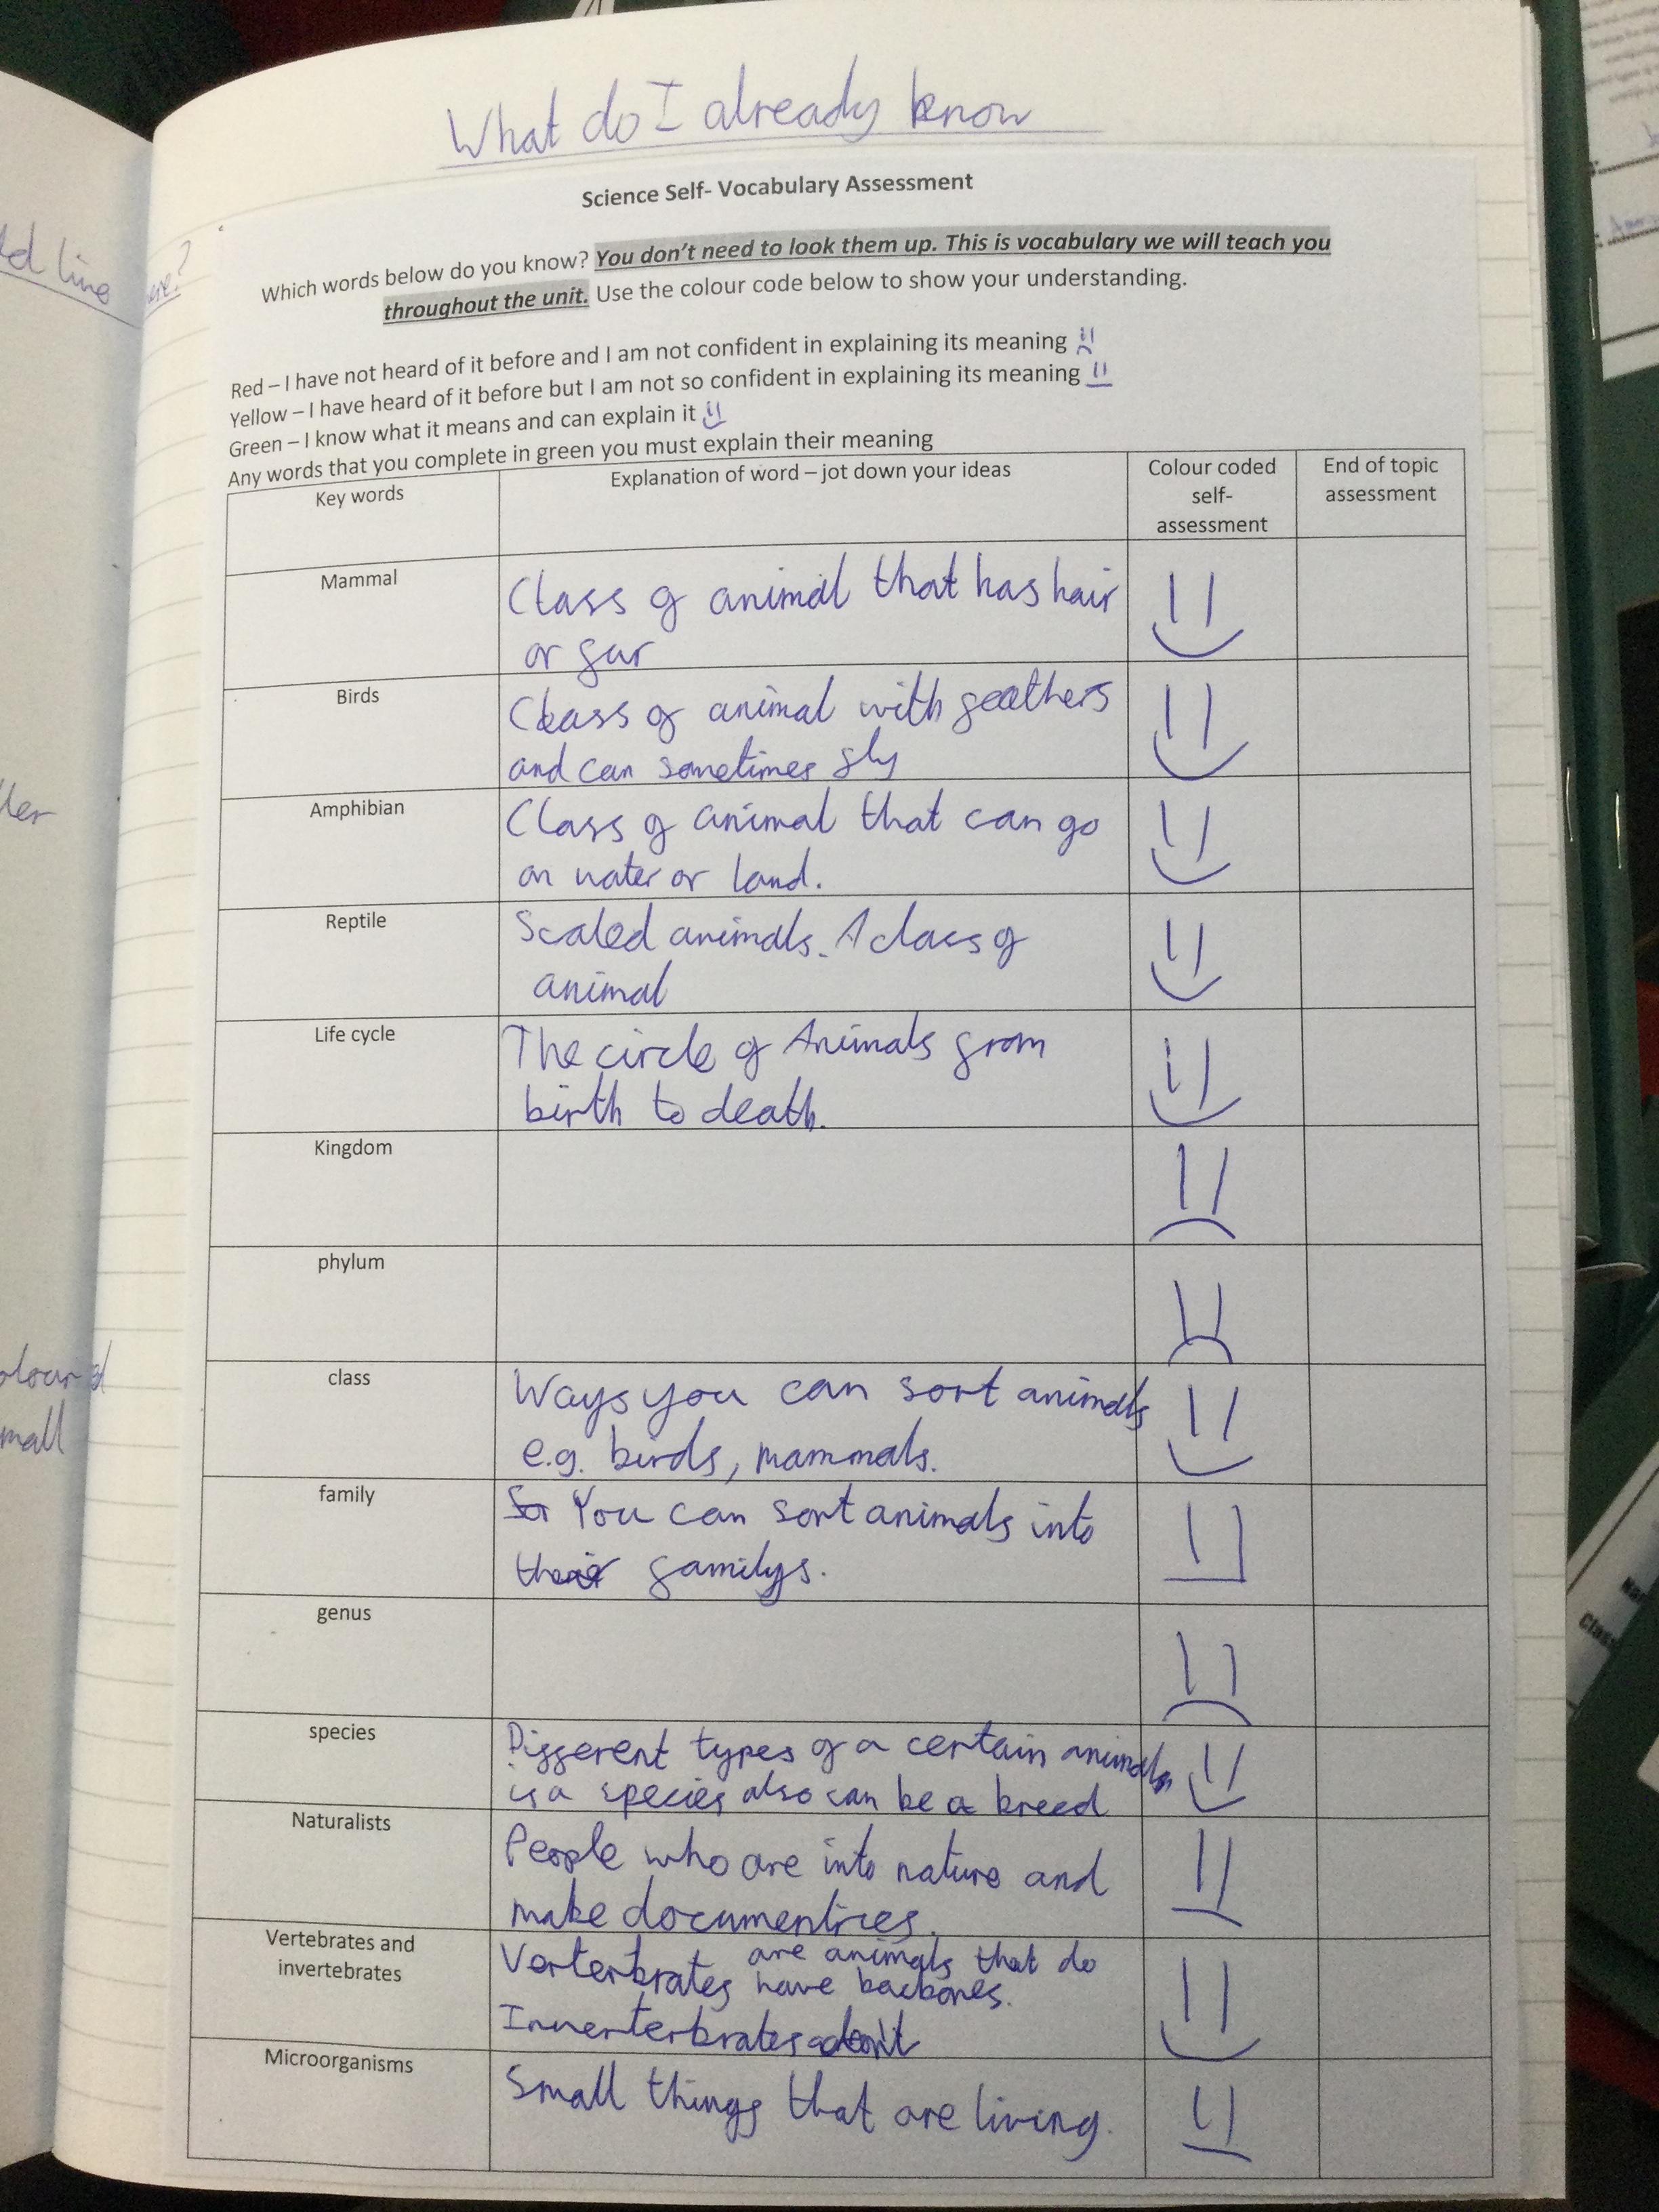 What do I already know
Science Self- Vocabulary Assessment
Which words below do you know? You don't need to look them up. This is vocabulary we will teach you
throughout the unit. Use the colour code below to show your understanding.
Red – I have not heard of it before and I am not confident in explaining its meaning
Yellow – I have heard of it before but I am not so confident in explaining its meaning
Green – I know what it means and can explain it
Any words that you complete in green you must explain their meaning
Key words
Explanation of word – jot down your ideas
Colour coded
self-
assessment
End of topic
assessment
Mammal
Class of animal that has hair
or fur
Birds
Class of animal with feathers
and can sometimes fly
Amphibian
Class of animal that can go
on water or land.
Reptile
Scaled animals. A class of
animal
Life cycle
The circle of Animals from
birth to death.
Kingdom
phylum
class
Ways you can sort animals
e.g. birds, mammals.
family
You can sort animals into
familys.
genus
species
Different types of a certain animals
is a species also can be a breed
Naturalists
People who are into nature and
make documentries.
Vertebrates and
invertebrates
Verterbrates are animals that do
have backbones.
Inverterbrates don't
Microorganisms
Small things that are living.
ed line
ere?
ller
olour
mall
Class